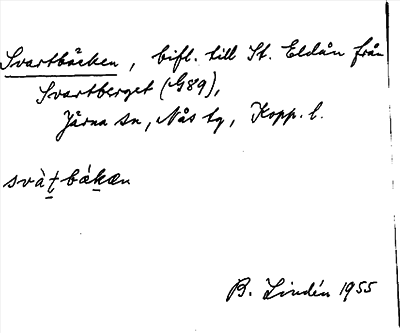 Svartbäcken, bifl. till St. Eldån från
Svartberget (G89),
Järna sn, Nås tg, Kopp. l.
svàt̠bák̠æn
B. Lindén 1955